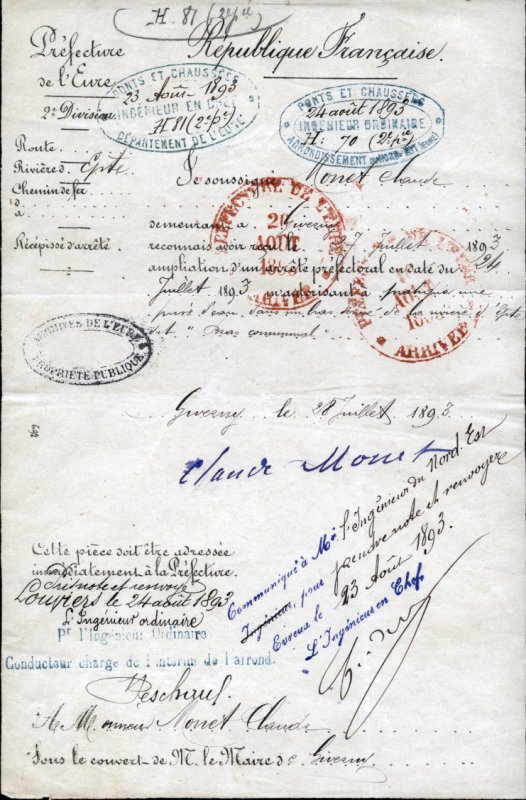 H. 81 (2e pée)
Préfecture
de l'Eure.
2e Division
République Française.
PONTS ET CHAUSSÉES
23 Août 1893
INGÉNIEUR EN CHEF
H 81 (2e pe)
DÉPARTEMENT DE L'EURE
PONTS ET CHAUSSÉES
24 août 1893
INGÉNIEUR ORDINAIRE
H: 70 (2e pe)
ARRONDISSEMENT
Route
Rivières Epte
Chemin de fer
d
à
Je soussigné Monet Claude
demeurant à Giverny
Récépissé d'arrêté.
reconnais avoir reçu le 27 Juillet 1893
ampliation d'un arrêté préfectoral en date du 24
Juillet 1893 m'autorisant à pratiquer une
prise d'eau dans un bras de la rivière d'Epte
dit "bras communal"
PRÉFECTURE DE L'EURE
25
AOUT
1893
ARRIVÉE
AOUT
189
ARRIVÉE
ARCHIVES DE L'EURE
PROPRIÉTÉ PUBLIQUE
Giverny le 28 Juillet 1893.
Claude Monet
Communiqué à Mr. l'Ingénieur du Nord-Est
Ingénieur, pour prendre note et renvoyer
Evreux le 23 Août 1893.
L'Ingénieur en Chef
Cette pièce doit être adressée
immédiatement à la Préfecture.
note et renvoi
Louviers le 24 août 1893
L'Ingénieur ordinaire
Pr l'Ingénieur Ordinaire
Conducteur chargé de l'intérim de l'arrond.
A Monsieur Monet Claude
Sous le couvert de M. le Maire de Giverny